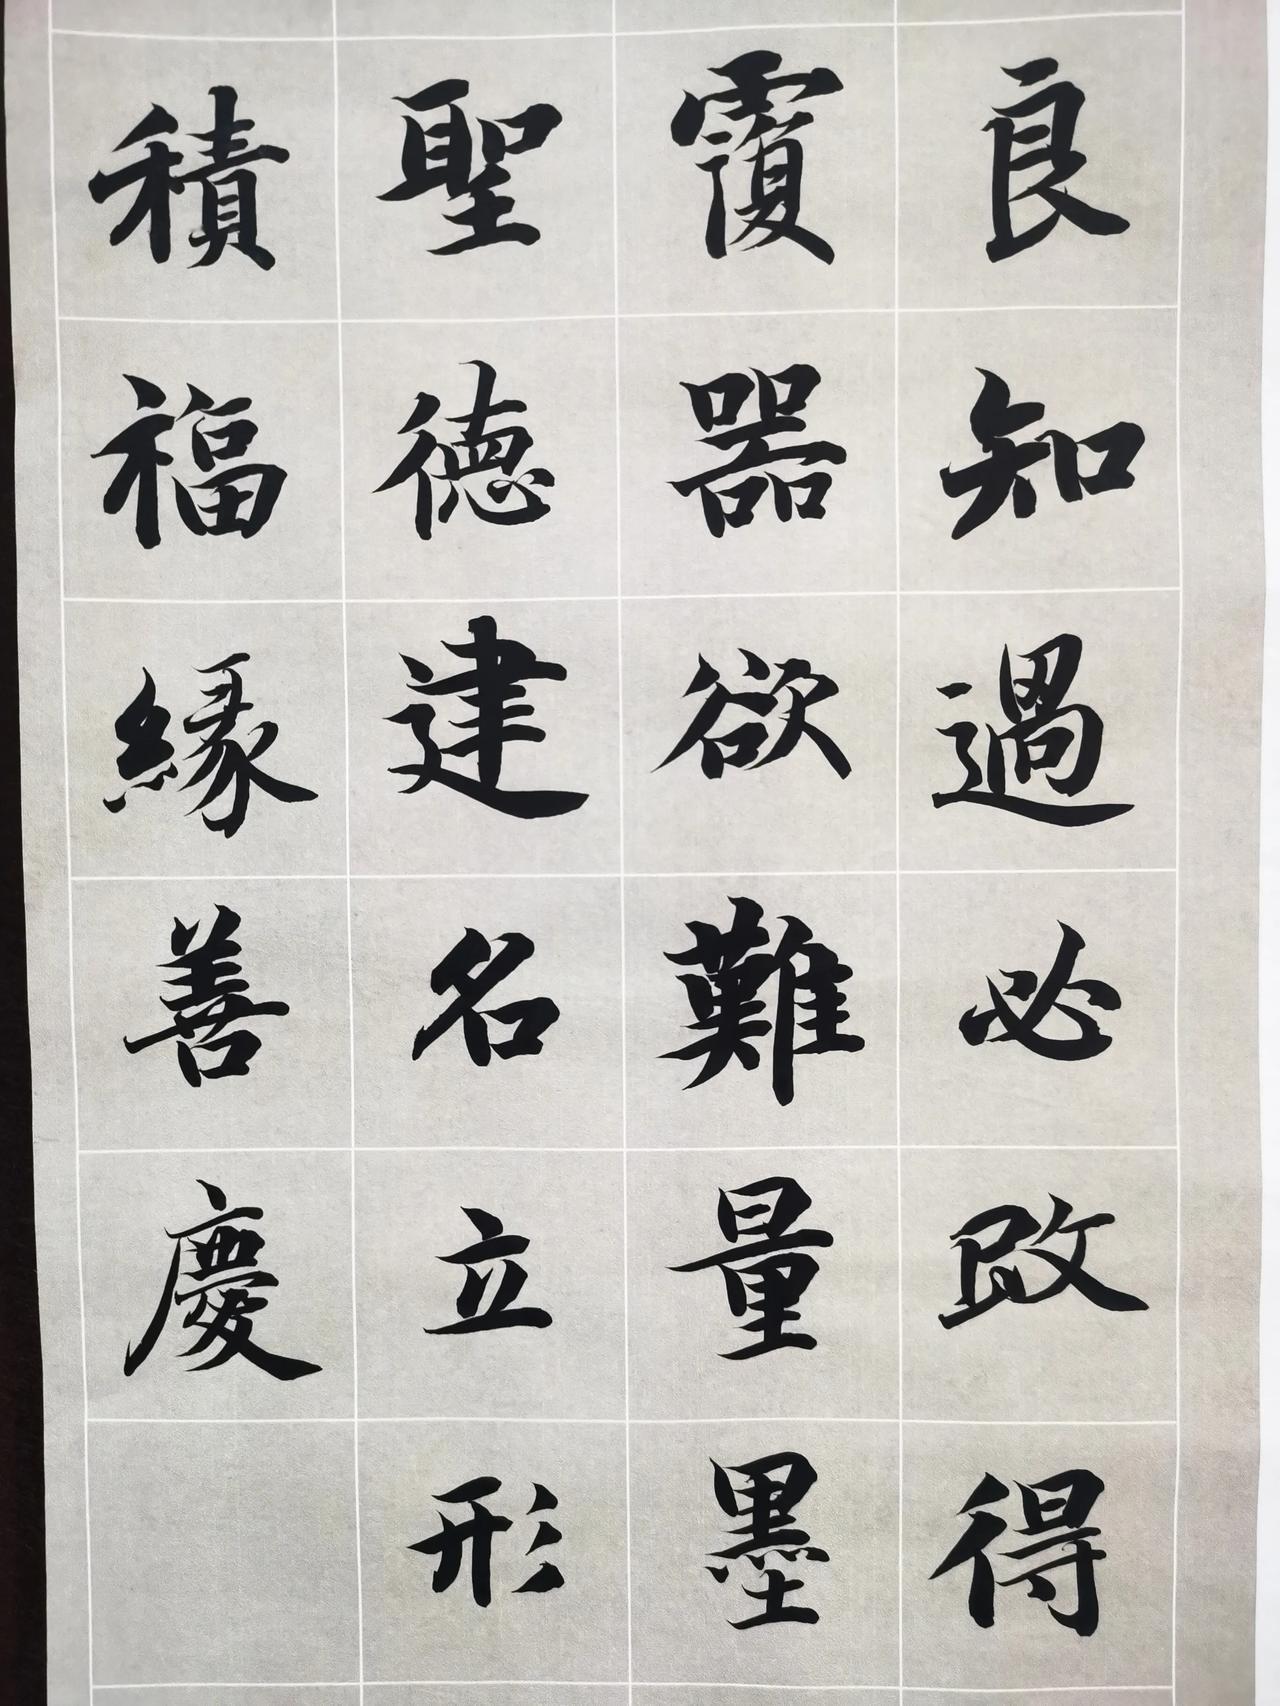 良知過必改得
覆器欲難量墨
聖德建名立形
積福緣善慶